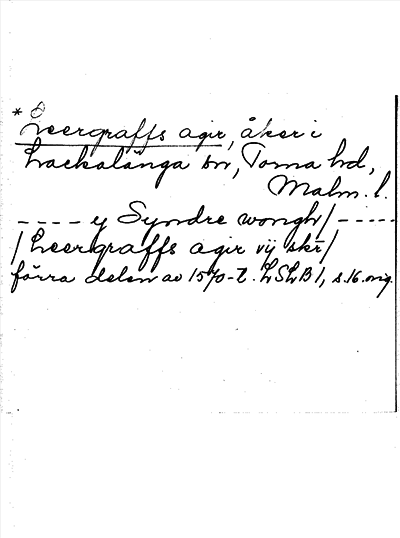 * Leergraffs agir, åker i
Lackalänga sn, Torna hd,
Malm. l.
---- ey Syndre wongh/-----
/Leergraffs agir vij skr/
förra delen av 1570-t. LSLB 1, s.16.orig.